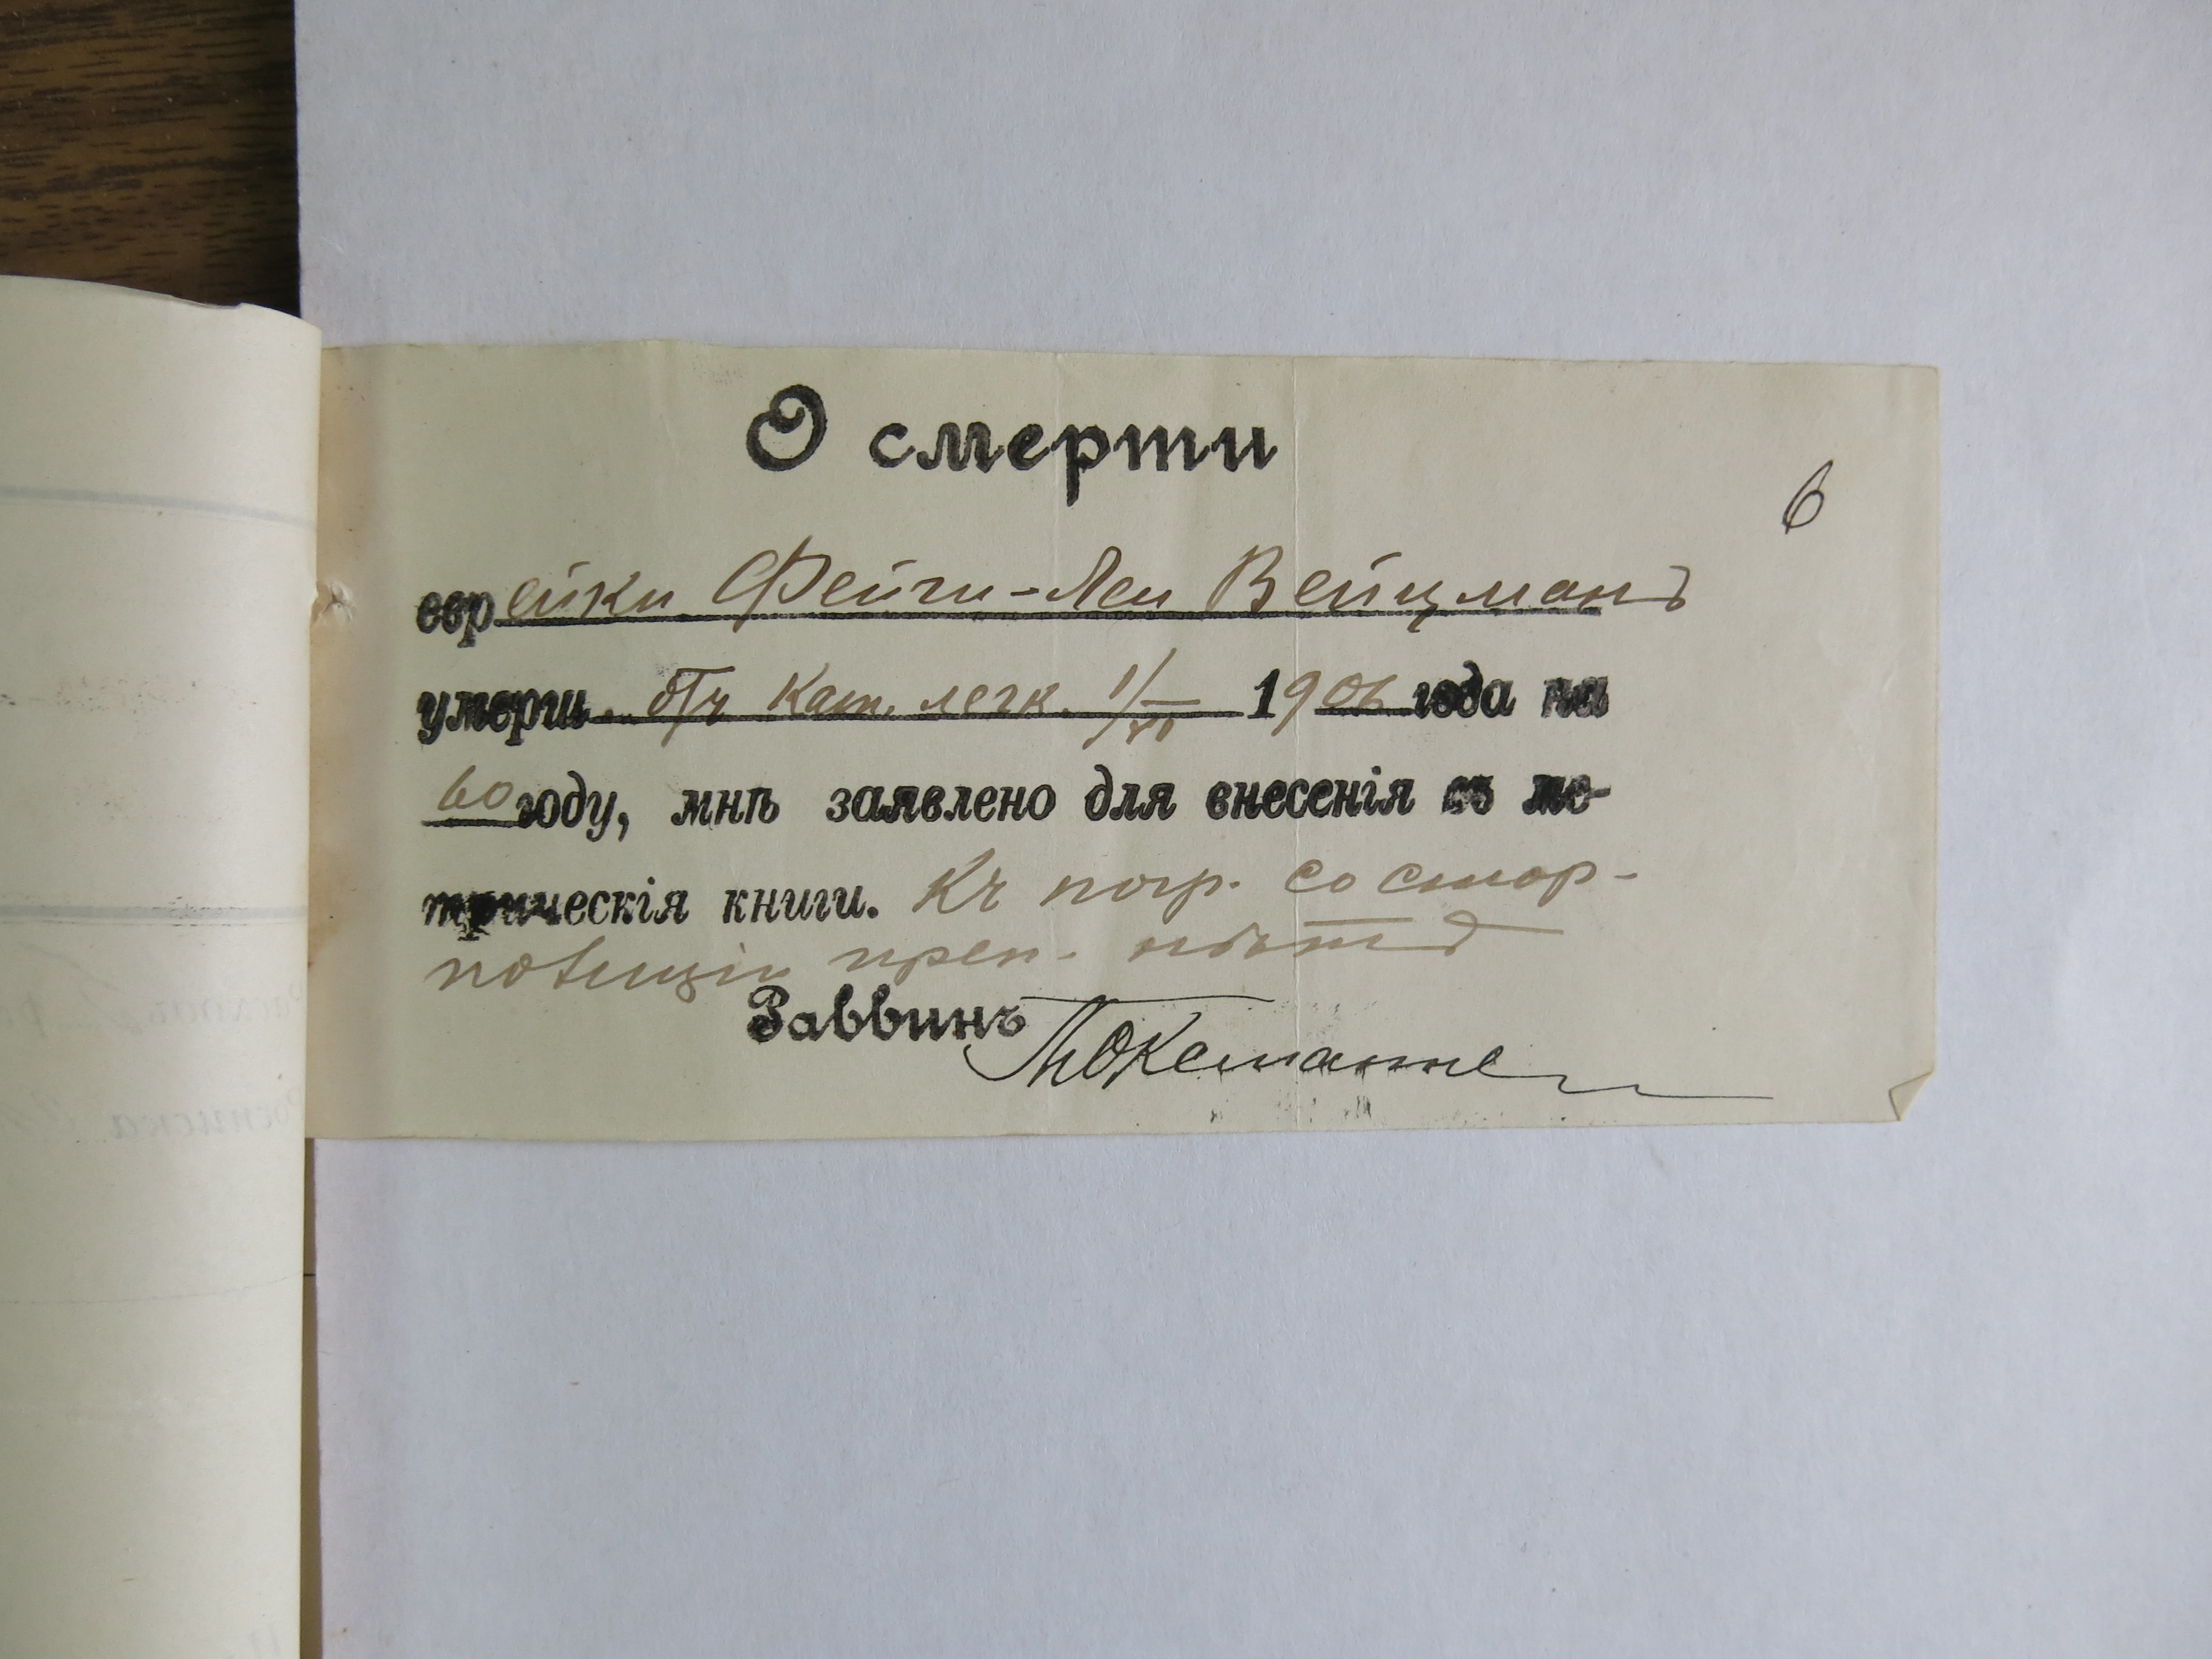 О смерти
6
еврейки Фейги-Леи Вейцманъ
умерш. отъ кат. легк. 1/XII 1906 года на
60 году, мнѣ заявлено для внесенія въ ме-
трическія книги. Къ погр. со стор-
поліціи преп. нѣтъ
Раввинъ